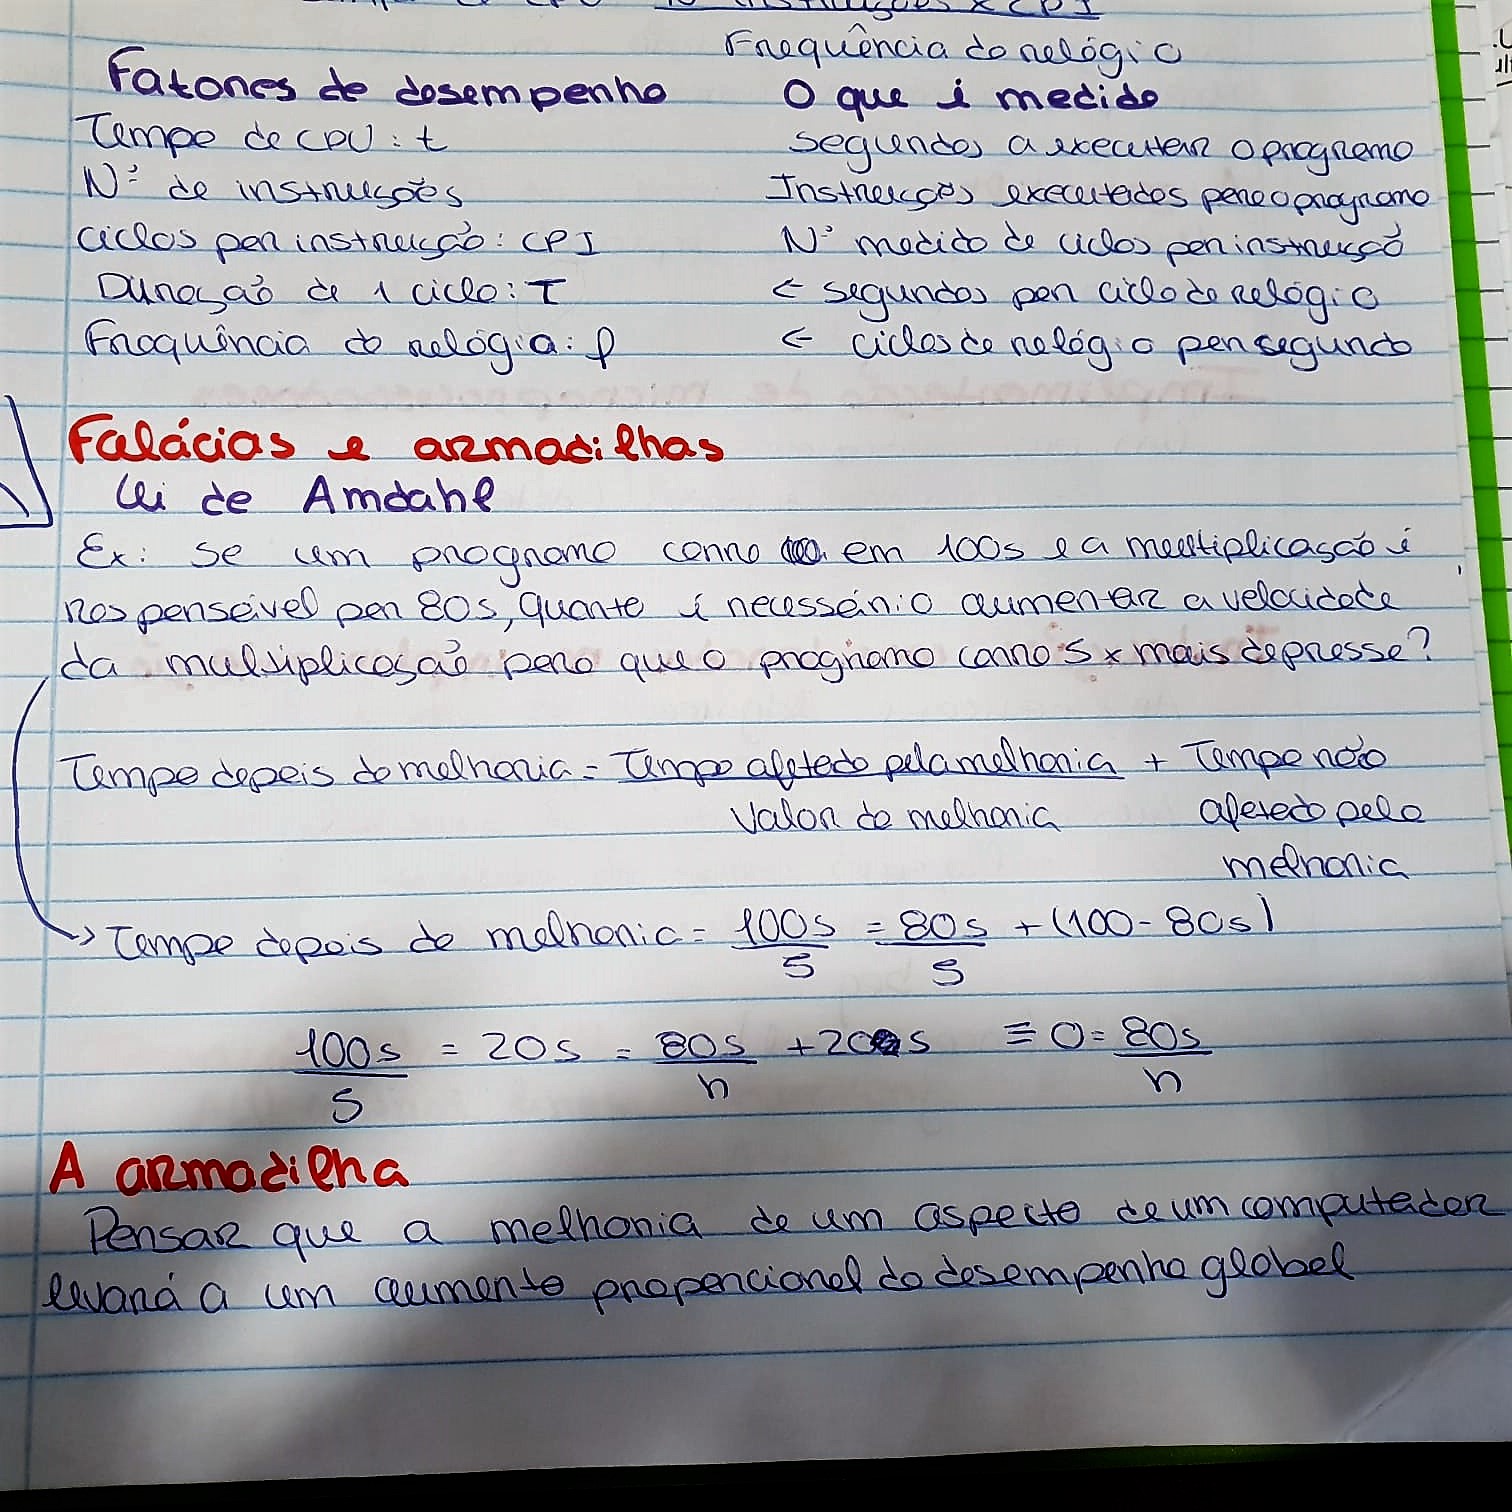 Nº instruções x CPI
Frequência do relógio
Fatores de desempenho O que é medido
Tempo de CPU: t segundos a executar o programa
Nº de instruções Instruções executadas para o programa
ciclos por instrução: CPI Nº medido de ciclos por instrução
Duração de 1 ciclo: T ← segundos por ciclo de relógio
Frequência do relógio: f ← ciclos de relógio por segundo
Falácias e armadilhas
Lei de Amdahl
Ex: se um programa corre em 100s e a multiplicação é
responsável por 80s, quanto é necessário aumentar a velocidade
da multiplicação para que o programa corra 5x mais depressa?
Tempo depois da melhoria = Tempo afetado pela melhoria + Tempo não
Valor da melhoria afetado pela
melhoria
→ Tempo depois da melhoria = 100s = 80s + (100 - 80s)
5 5
100s = 20s = 80s + 20s ≡ 0 = 80s
5 n n
A armadilha
Pensar que a melhoria de um aspecto de um computador
levará a um aumento proporcional do desempenho global